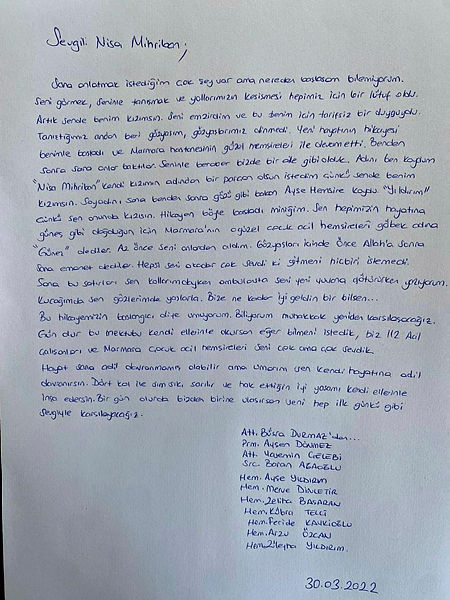 Sevgili Nisa Mihriban;
Sana anlatmak istediğim çok şey var ama nereden başlasam bilemiyorum.
Seni görmek, seninle tanışmak ve yollarımızın kesişmesi hepimiz için bir lütuf oldu.
Artık sende benim kızımsın. Seni emzirdim ve bu benim için tarifsiz bir duyguydu.
Tanıştığımız andan beri gözyaşım, gözyaşlarımız dinmedi. Yeni hayatının hikayesi
benimle başladı ve Marmara hastanesinin güzel hemşireleri ile devam etti. Benden
sonra sana onlar baktılar. Seninle beraber bizde bir aile gibi olduk. Adını ben koydum
"Nisa Mihriban" kendi kızımın adından bir parçan olsun istedim çünkü sende benim
kızımsın. Soyadını sana benden sonra gözü gibi bakan Ayşe Hemşire koydu. "Yıldırım"
çünkü sen onunda kızısın. Hikayen böyle başladı miniğim. Sen hepimizin hayatına
güneş gibi doğduğun için Marmara'nın güzel çocuk acil hemşireleri göbek adına
"Güneş" dediler. Az önce seni onlardan aldım. Gözyaşları içinde önce Allah'a sonra
bana emanet dediler. Hepsi seni okadar çok sevdi ki gitmeni hiçbiri istemedi.
Sana bu satırları sen kollarımdayken ambulansta seni yeni yuvana götürürken yazıyorum.
Kucağımda sen gözlerimde yaşlarla. Bize ne kadar iyi geldin bir bilsen...
Bu hikayemizin başlangıcı diye umuyorum. Biliyorum muhakkak yeniden karşılaşacağız.
Gün olur bu mektubu kendi ellerinle okursan eğer bilmeni istedik, biz 112 Acil
çalışanları ve Marmara çocuk acil hemşireleri seni çok ama çok sevdik.
Hayat sana adil davranmamış olabilir ama umarım sen kendi hayatına adil
davranırsın. Dört kol ile dimdik sarılır ve hak ettiğin iyi yaşamı kendi ellerinle
inşa edersin. Bir gün olurda bizden birine ulaşırsan seni hep ilk günkü gibi
sevgiyle karşılayacağız.
Att. Büşra DURMAZ'dan...
Prm. Ayşen DÖNMEZ
Att. Yasemin ÇELEBİ
Src. Baran AĞAOĞLU
Hem. Ayşe YILDIRIM
Hem. Merve DİNLETİR
Hem. Zeliha BAŞARAN
Hem. Kübra TELCİ
Hem. Feride KAVKIOĞLU
Hem. Arzu ÖZCAN
Hem. Züleyha YILDIRIM
30.03.2022